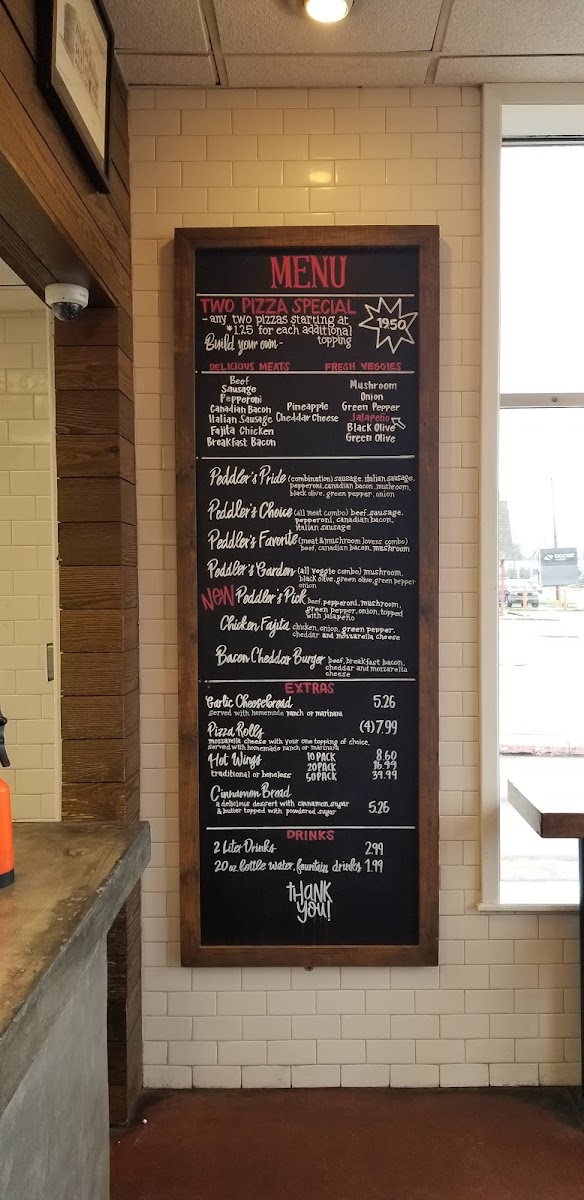 MENU
TWO PIZZA SPECIAL
- any two pizzas starting at
19.50
*1.25 for each additional
topping
Build your own -
DELICIOUS MEATS FRESH VEGGIES
Beef
Sausage
Pepperoni
Canadian Bacon
Italian Sausage
Fajita Chicken
Breakfast Bacon
Pineapple
Cheddar Cheese
Mushroom
Onion
Green Pepper
Jalapeño
Black Olive
Green Olive
Peddler's Pride (combination) sausage, italian sausage,
pepperoni, canadian bacon, mushroom,
black olive, green pepper, onion
Peddler's Choice (all meat combo) beef, sausage,
pepperoni, canadian bacon,
italian sausage
Peddler's Favorite (meat & mushroom lovers combo)
beef, canadian bacon, mushroom
Peddler's Garden (all veggie combo) mushroom,
black olive, green olive, green pepper
onion
NEW Peddler's Pick beef, pepperoni, mushroom,
green pepper, onion, topped
with jalapeño
Chicken Fajita chicken, onion, green pepper,
cheddar and mozzarella cheese
Bacon Cheddar Burger beef, breakfast bacon,
cheddar and mozzarella
cheese
EXTRAS
Garlic Cheesebread 5.26
served with homemade ranch or marinara
Pizza Rolls (4) 7.99
mozzarella cheese with your one topping of choice,
served with homemade ranch or marinara
Hot Wings 10 PACK 8.60
20 PACK 16.99
traditional or boneless 50 PACK 39.99
Cinnamon Bread
a delicious dessert with cinnamon, sugar
& butter topped with powdered sugar 5.26
DRINKS
2 Liter Drinks 2.99
20 oz. bottle water, fountain drinks 1.99
THANK
YOU!
boost